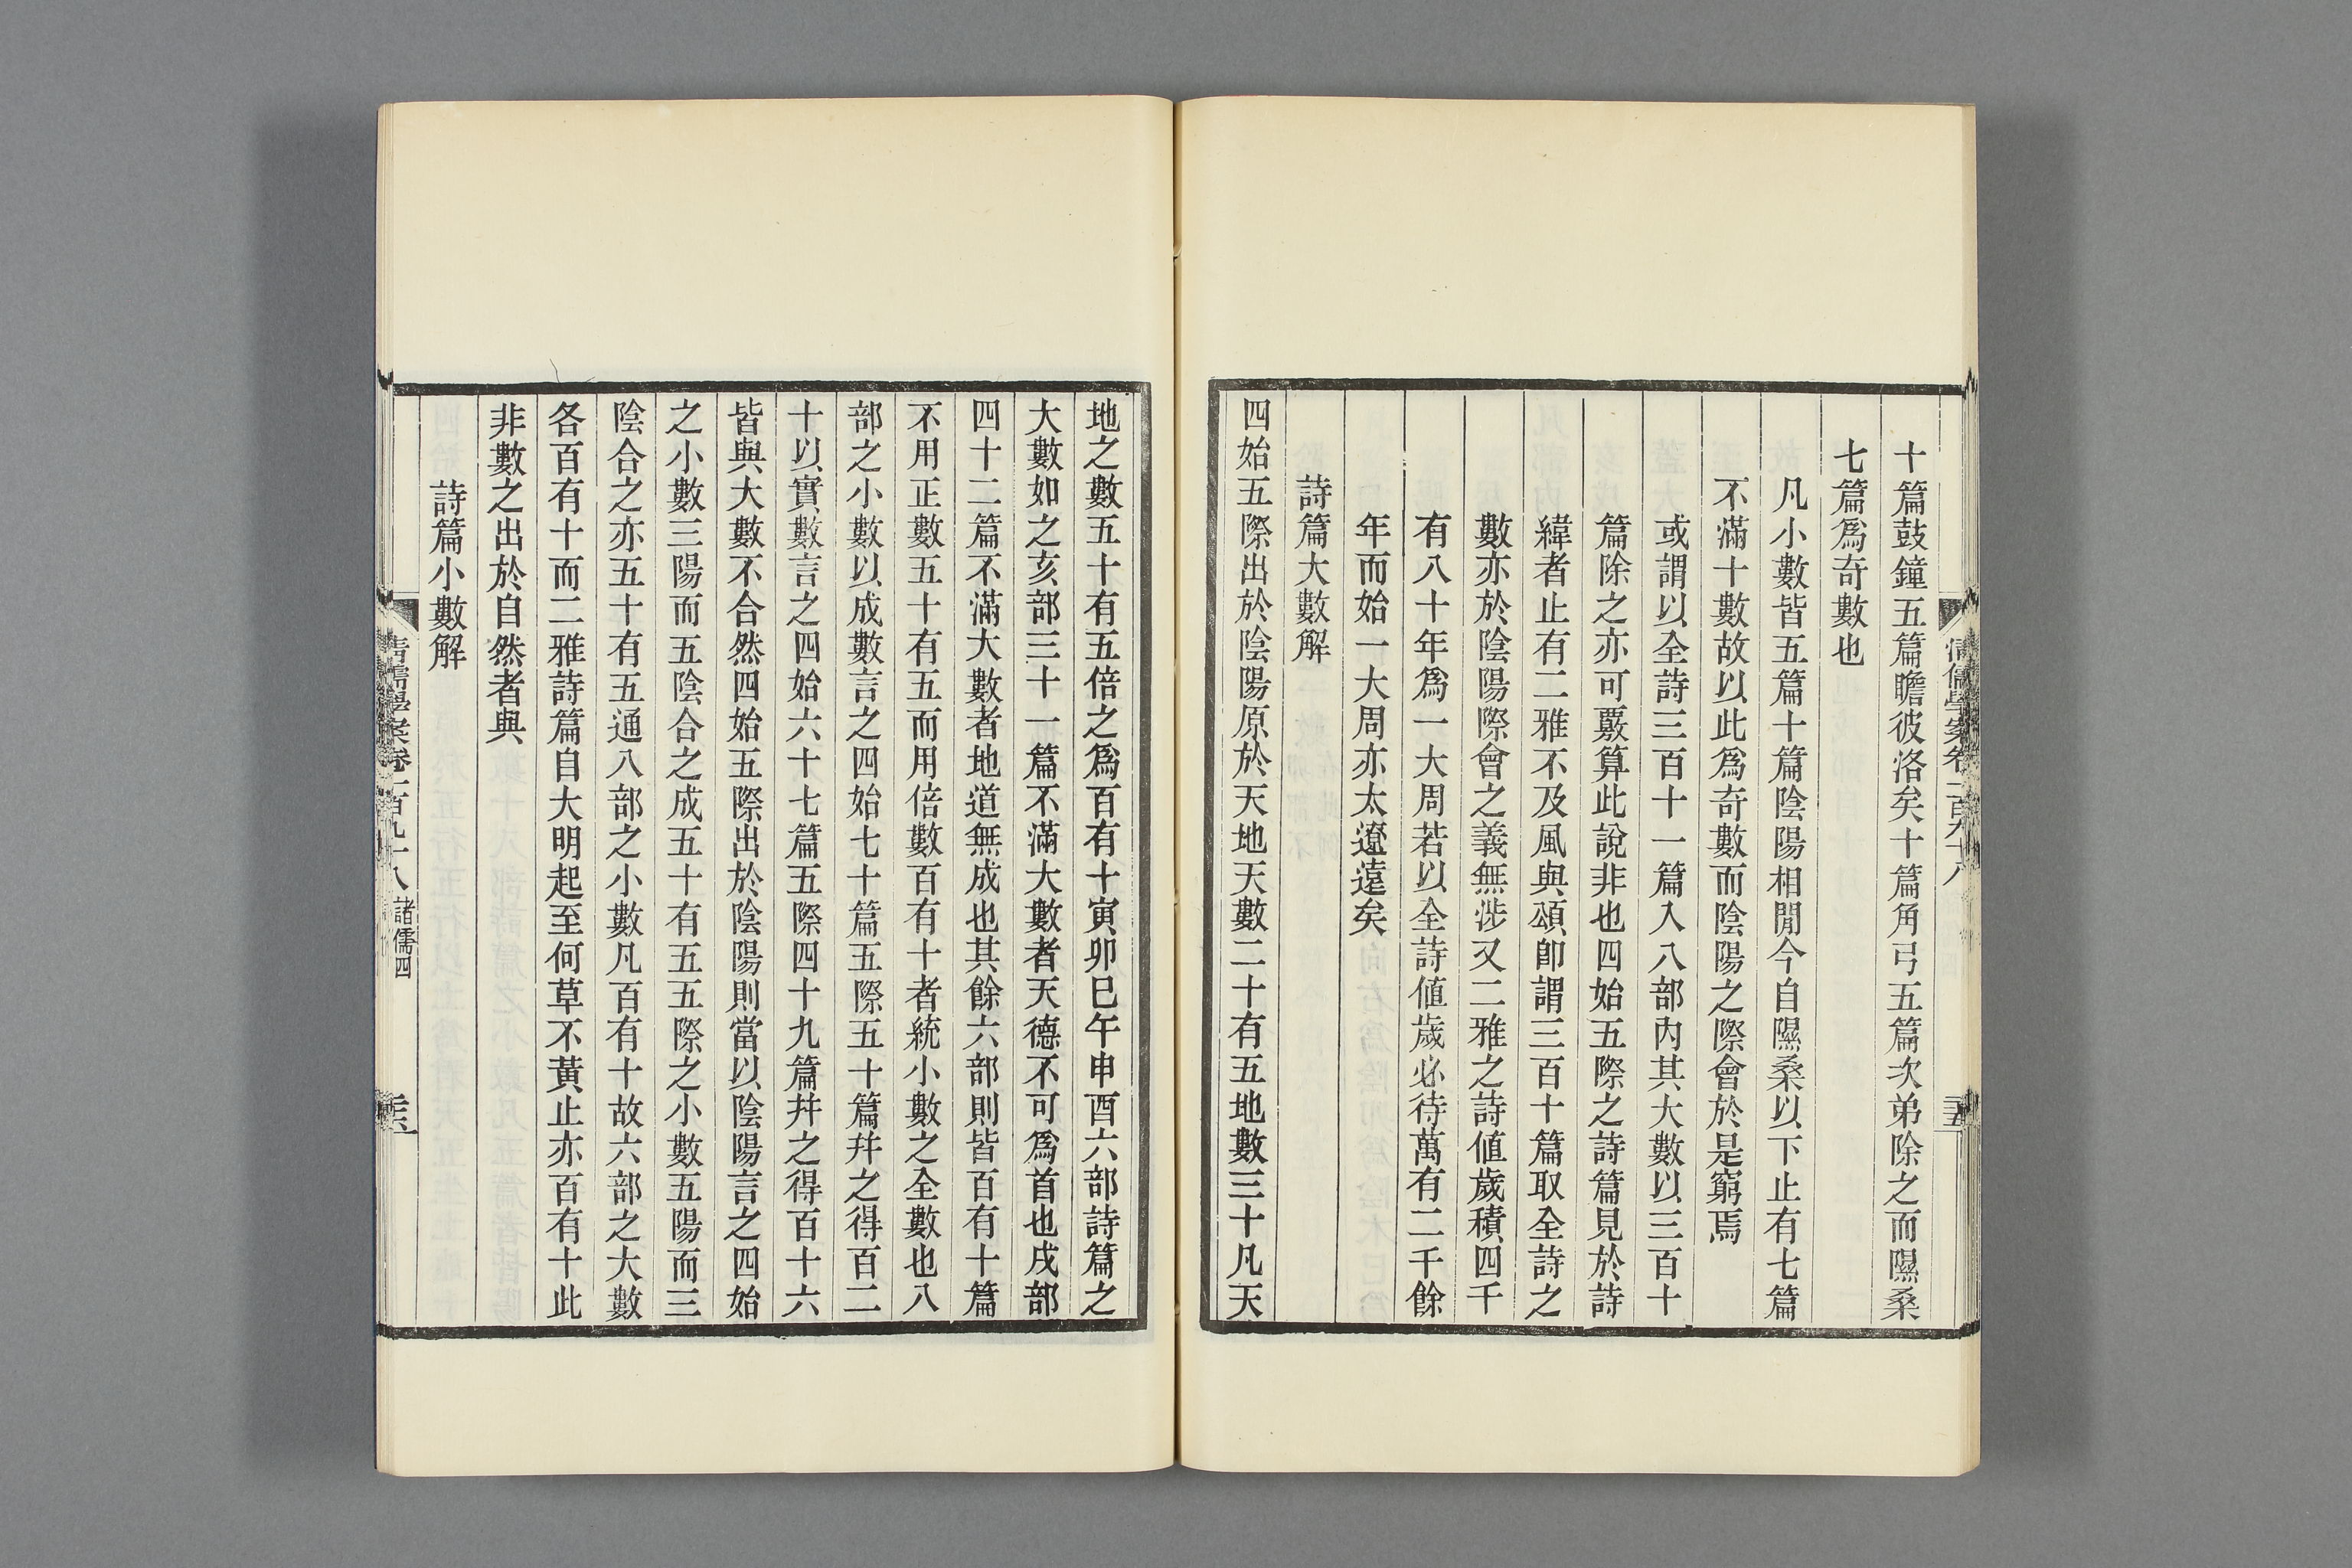 十篇鼓鐘五篇瞻彼洛矣十篇角弓五篇次弟除之而隰桑
七篇爲奇數也
凡小數皆五篇十篇陰陽相閒今自隰桑以下止有七篇
不滿十數故以此爲奇數而陰陽之際會於是窮焉
或謂以全詩三百十一篇入八部內其大數以三百十
篇除之亦可覈算此說非也四始五際之詩篇見於詩
緯者止有二雅不及風與頌卽謂三百十篇取全詩之
數亦於陰陽際會之義無涉又二雅之詩値歲積四千
有八十年爲一大周若以全詩値歲必待萬有二千餘
年而始一大周亦太遼遠矣
詩篇大數解
四始五際出於陰陽原於天地天數二十有五地數三十凡天
地之數五十有五倍之爲百有十寅卯巳午申酉六部詩篇之
大數如之亥部三十一篇不滿大數者天德不可爲首也戌部
四十二篇不滿大數者地道無成也其餘六部則皆百有十篇
不用正數五十有五而用倍數百有十者統小數之全數也八
部之小數以成數言之四始七十篇五際五十篇幷之得百二
十以實數言之四始六十七篇五際四十九篇幷之得百十六
皆與大數不合然四始五際出於陰陽則當以陰陽言之四始
之小數三陽而五陰合之成五十有五五際之小數五陽而三
陰合之亦五十有五通八部之小數凡百有十故六部之大數
各百有十而二雅詩篇自大明起至何草不黃止亦百有十此
非數之出於自然者與
詩篇小數解
清儒學案卷一百九十八
諸儒四